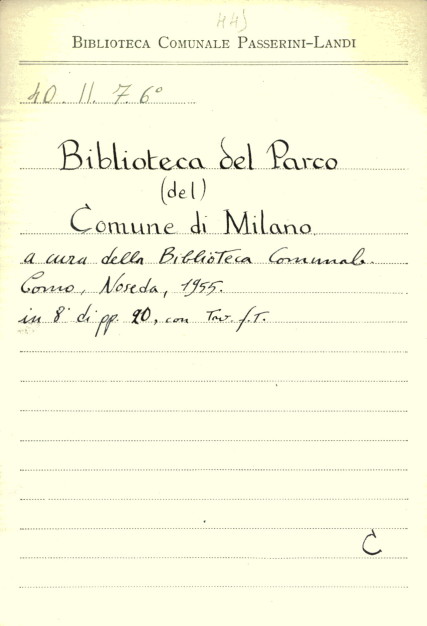 443
BIBLIOTECA COMUNALE PASSERINI-LANDI
40. II. 7. 6°
Biblioteca del Parco
(del)
Comune di Milano
a cura della Biblioteca Comunale.
Como, Noseda, 1955.
in 8° di pp. 20, con Tav. f.T.
C